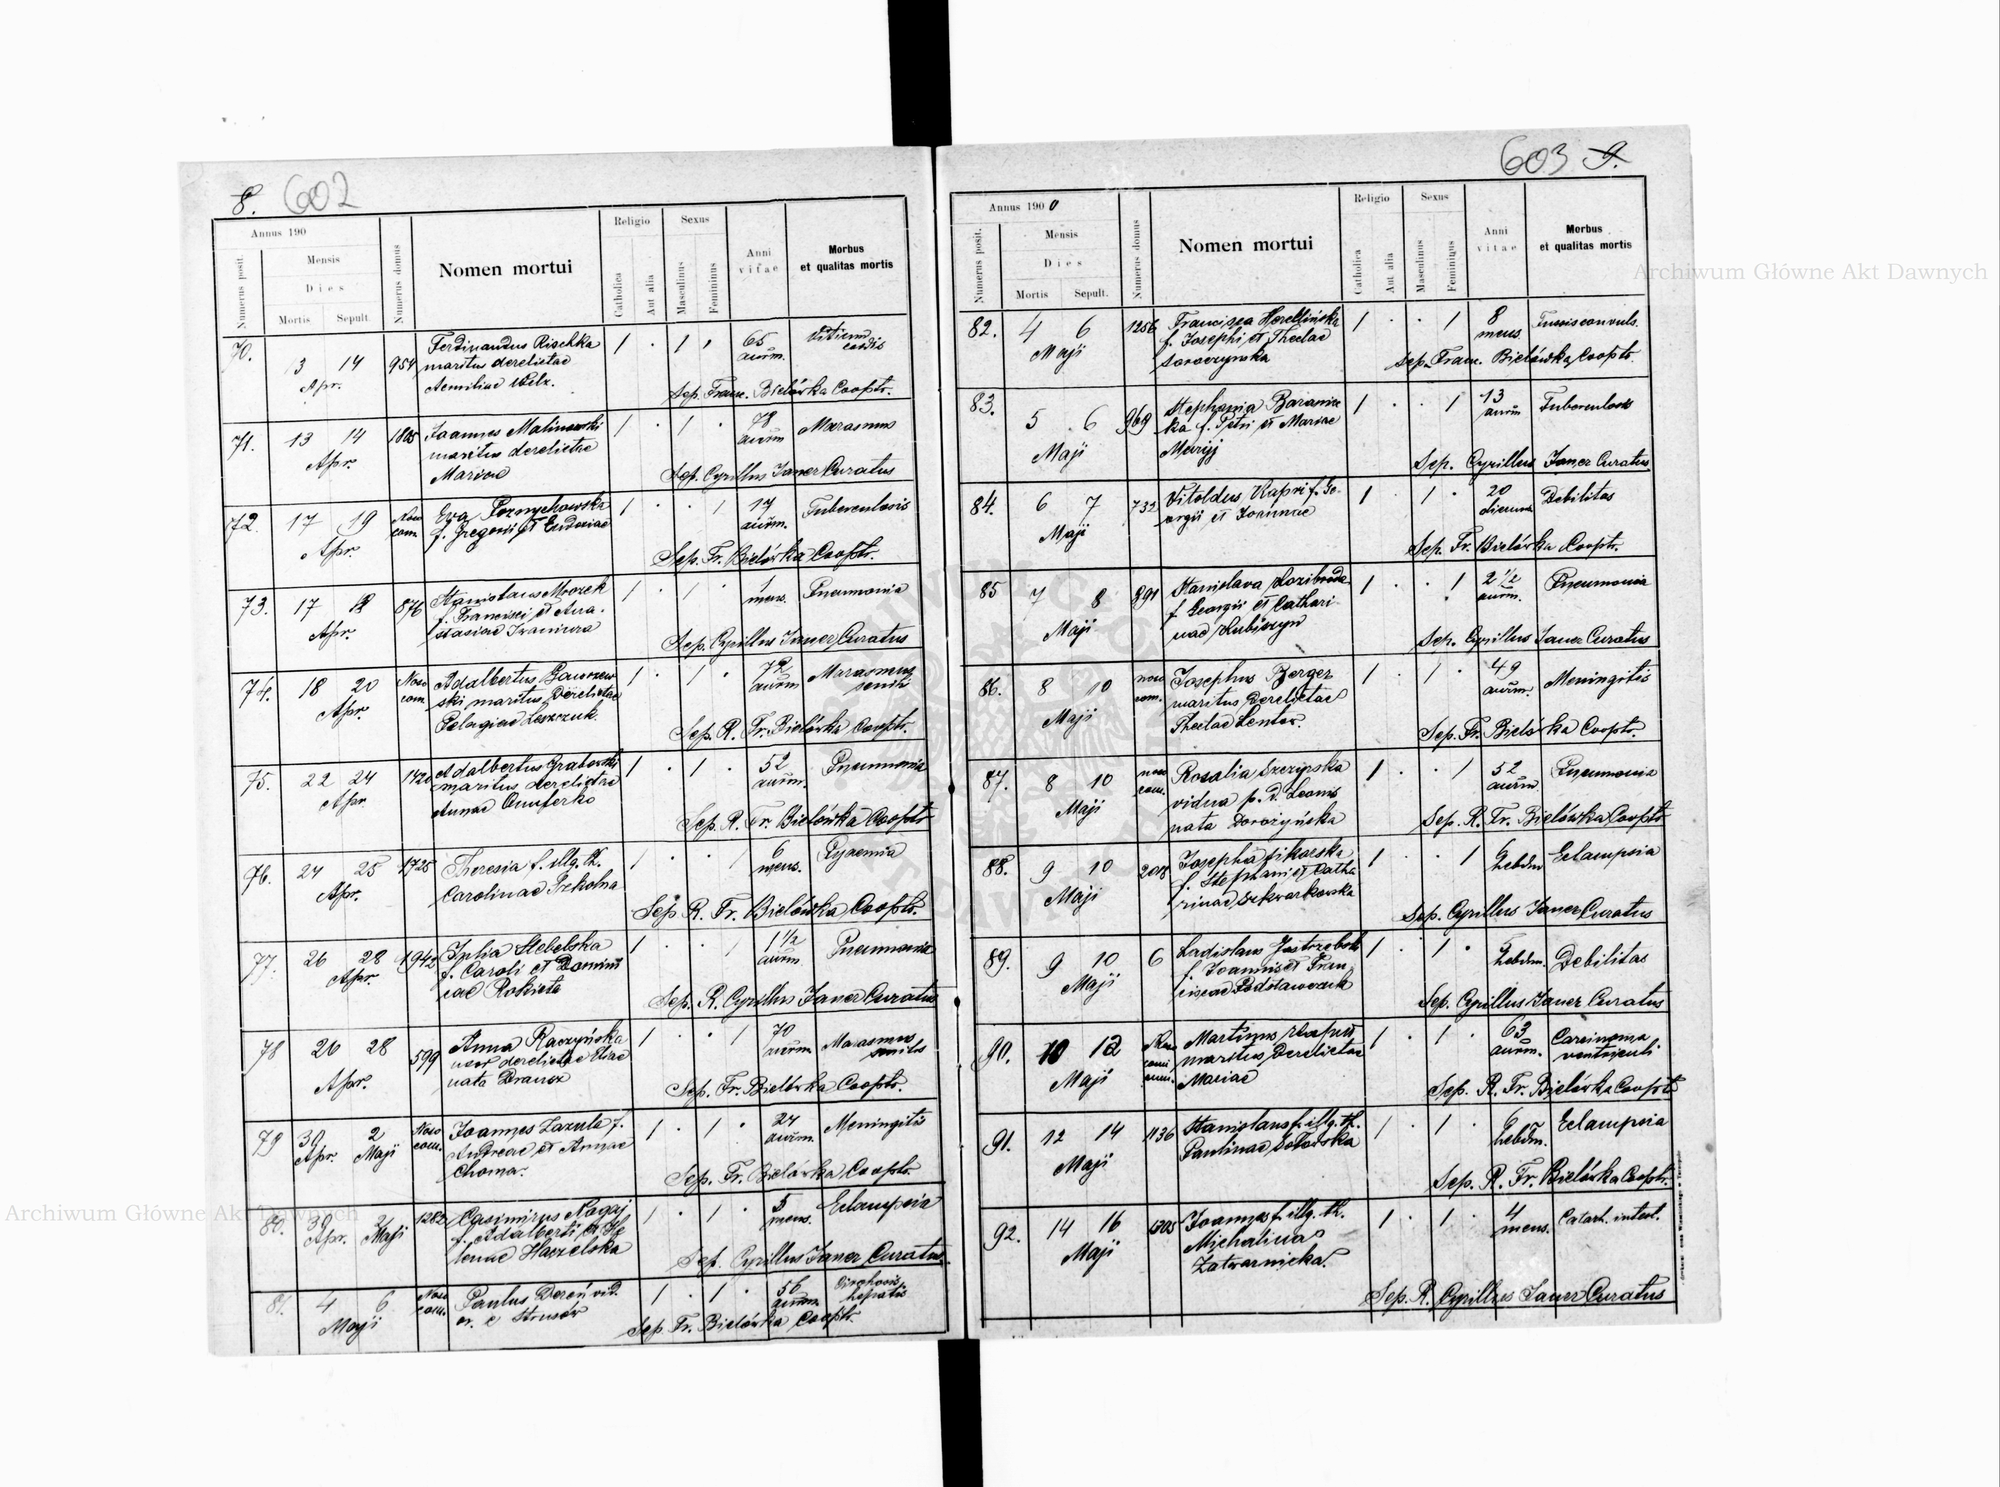 8. 602
Annus 190
Numerus posit.
Mensis
Dies
Mortis Sepult.
Numerus domus
Nomen mortui
Religio
Catholica
Aut alia
Sexus
Masculinus
Femininus
Anni vitae
Morbus et qualitas mortis
70. 13 14 Apr. 954 Ferdinandus Rischka 1 . 1 . 65 annor. Vitium cordis
maritus derelictae
Aemiliae
Sep. Franc. Bielówka Cooptr.
71. 13 14 Apr. 1805 Joannes Malinowski 1 . 1 . 78 annor. Marasmus
maritus derelictae
Mariae
Sep. Cyrillus Janer Curatus
72. 17 19 Apr. Noso com. Eva Poznychowska 1 . . 1 17 annor. Tuberculosis
f. Gregorii et Eudoxiae
Sep. Fr. Bielówka Cooptr.
73. 17 18 Apr. 876 Stanislaus Mrozek 1 . 1 . 1 mens. Pneumonia
f. Francisci et Ana-
stasiae Iwaniura
Sep. Cyrillus Janer Curatus
74. 18 20 Apr. Noso com. Adalbertus Gawrzew 1 . 1 . 72 annor. Marasmus senilis
ski maritus derelictae
Pelagiae Leszczuk.
Sep. R. Fr. Bielówka Cooptr.
75. 22 24 Apr. 1420 Adalbertus Grabowski 1 . 1 . 52 annor. Pneumonia
maritus derelictae
Annae Onuferko
Sep. R. Fr. Bielówka Cooptr.
76. 24 25 Apr. 1725 Theresia f. illg. th. 1 . . 1 6 mens. Pyaemia
Carolinae Prekolna
Sep. R. Fr. Bielówka Cooptr.
77. 26 28 Apr. 1942 Julia Stebelska 1 . . 1 1 1/2 annor. Pneumonia
f. Caroli et Domini
cae Rokieta
Sep. R. Cyrillus Janer Curatus
78 26 28 Apr. 599 Anna Raczyńska 1 . . 1 70 annor. Marasmus senilis
uxor derelictae Eliae
nata
Sep. Fr. Bielówka Cooptr.
79 30 Apr. 2 Maji Noso com. Joannes Zazula f. 1 . 1 . 24 annor. Meningitis
Andreae et Annae
Choma.
Sep. Fr. Bielówka Cooptr.
80. 30 Apr. 2 Maji 1282 Casimirus Nagaj 1 . 1 . 5 mens. Eclampsia
f. Adalberti et He
lenae Haczelska
Sep. Cyrillus Janer Curatus.
81. 4 6 Maji Noso com. Paulus Dereń vid. 1 . 1 . 56 annor. Cirrhosis hepatis
or. e Strusów
Sep. Fr. Bielówka Cooptr.
603 9.
Annus 1900
Numerus posit.
Mensis
Dies
Mortis Sepult.
Numerus domus
Nomen mortui
Religio
Catholica
Aut alia
Sexus
Masculinus
Femininus
Anni vitae
Morbus et qualitas mortis
82. 4 6 Maji 1256 Francisca 1 . . 1 8 mens. Tussis convuls.
f. Josephi et Theclae
Soroczynska
Sep. Franc. Bielówka Cooptr.
83. 5 6 Maji 969 Stephania Baranie 1 . . 1 13 annor. Tuberculosis
ka f. Petri et Mariae
Sep. Cyrillus Janer Curatus
84. 6 7 Maji 732 Vitoldus Kapri f. Ge- 1 . 1 . 20 dierum Debilitas
orgii et Joannae
Sep. Fr. Bielówka Cooptr.
85 7 8 Maji 891 Stanislava Kozibroda 1 . . 1 2 1/2 annor. Pneumonia
f. Georgii et Cathari-
nae Kubiszyn
Sep. Cyrillus Janer Curatus
86. 8 10 Maji noso com. Josephus Berger 1 . 1 . 49 annor. Meningitis
maritus derelictae
Theclae
Sep. Fr. Bielówka Cooptr.
87. 8 10 Maji noso com. Rosalia Szczypska 1 . . 1 52 annor. Pneumonia
vidua p. d. Leonis
nata Dorożyńska
Sep. R. Fr. Bielówka Cooptr
88. 9 10 Maji 2018 Josepha Sikorska 1 . . 1 6 hebdm Eclampsia
f. Stephani et Catha
rinae
Sep. Cyrillus Janer Curatus
89. 9 10 Maji 6 Ladislaus Jastrzebski 1 . 1 . hebdm. Debilitas
f. Joannis et Fran
ciscae Podstawczuk
Sep. Cyrillus Janer Curatus
90. 10 12 Maji Martinus 1 . 1 . 63 annor. Carcinoma ventriculi
maritus derelictae
Mariae
Sep. R. Fr. Bielówka Cooptr
91. 12 14 Maji 1136 Stanislaus f. illg. th. 1 . 1 . 6 hebdm. Eclampsia
Paulinae
Sep. R. Fr. Bielówka Cooptr.
92. 14 16 Maji Joannes f. illg. th. 1 . 1 . 4 mens. Catarh. intest.
Michalinae
Zatwarnicka.
Sep. R. Cyrillus Janer Curatus
Archiwum Główne Akt Dawnych
Archiwum Główne Akt Dawnych